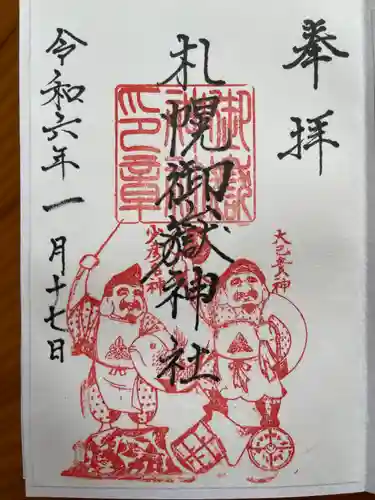 奉拝
札幌御嶽神社
令和六年一月十七日
御嶽
神社
印章
大己貴神
少彦名神